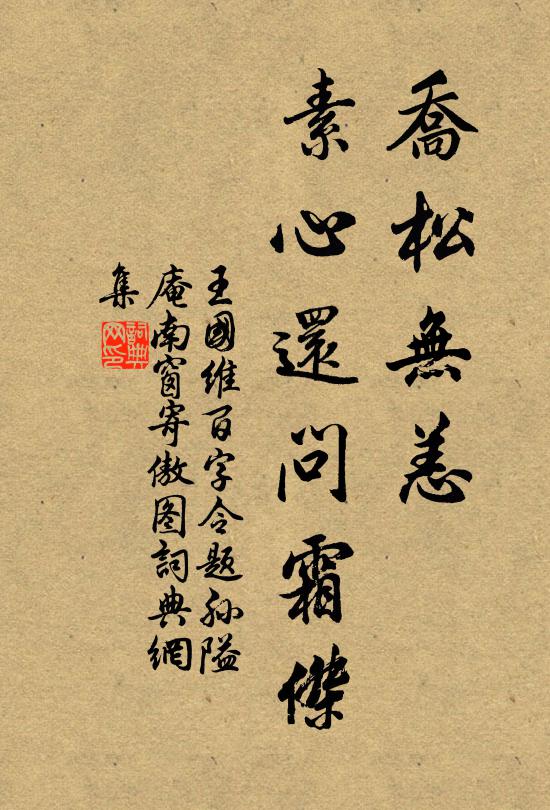 喬松無恙
素心還問霜傑
王國維百字令題孫隘
庵南窗寄傲图詞典網
集
詞典网印